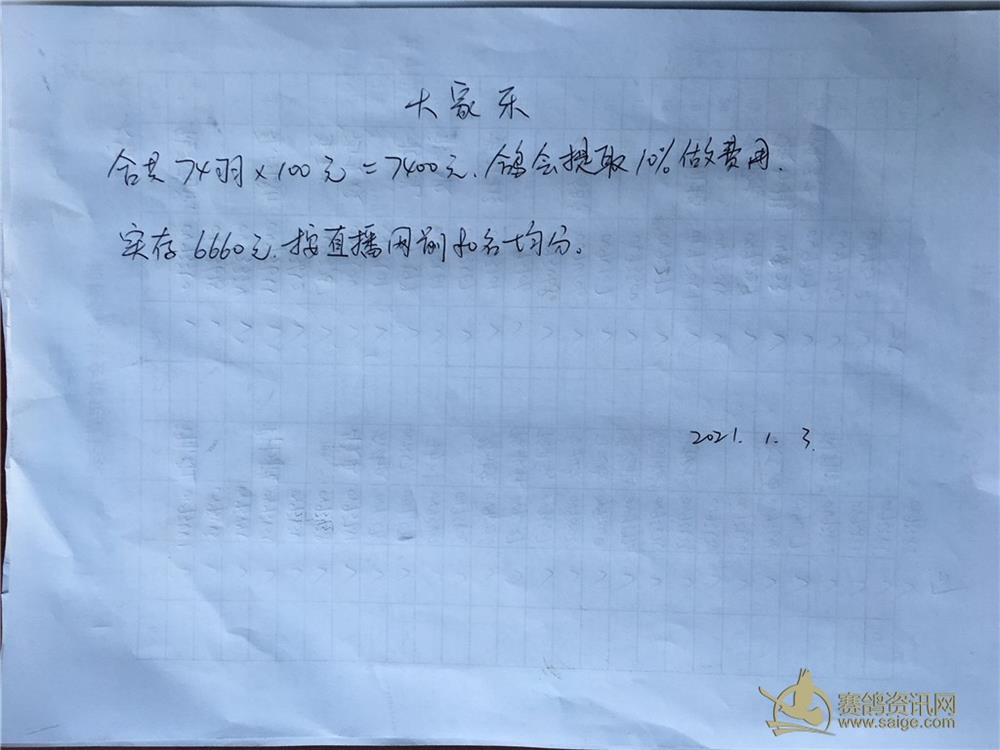 大家乐
合共74羽×100元=7400元.鸽会提取10%做费用.
实存6660元.按直播网前40名均分。
2021. 1. 3.
赛鸽资讯网
www.saige.com